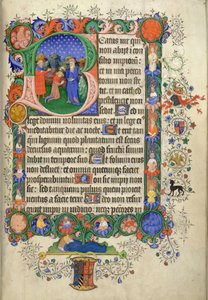 Beatus vir qui
non abiit i con
silio impioru; et
in via pecca
torum non
et in
pestilencie
non sedit Sed in
lege domini voluntas eius: et in lege
meditabitur die ac nocte Et erit tan
quam lignum quod plantatum est secus
Quod fructum suum
dabit in tempore suo Et folium eius
non defluet: et omnia quecumque faciet
prosperabuntur Non sic impii non
sic: sed tanquam puluis quem proicit
ventus a facie terre Ideo non resur
gunt impii in iudicio: neque peccatores in